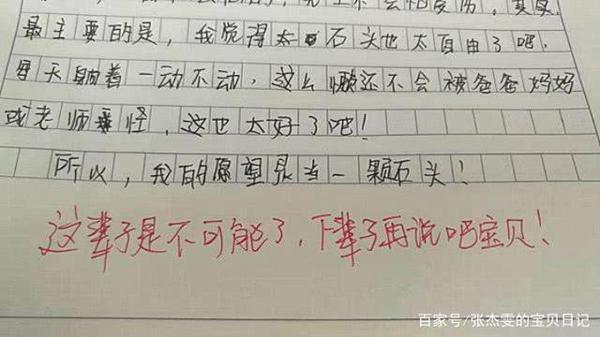 最主要的是，我觉得太石头也太自由了吧．
每天躺着一动不动．这么懒还不会被爸爸妈妈
或老师责怪，这也太好了吧！
所以，我的愿望是当一颗石头！
这辈子是不可能了，下辈子再说吧宝贝！
百家号/张杰雯的宝贝日记